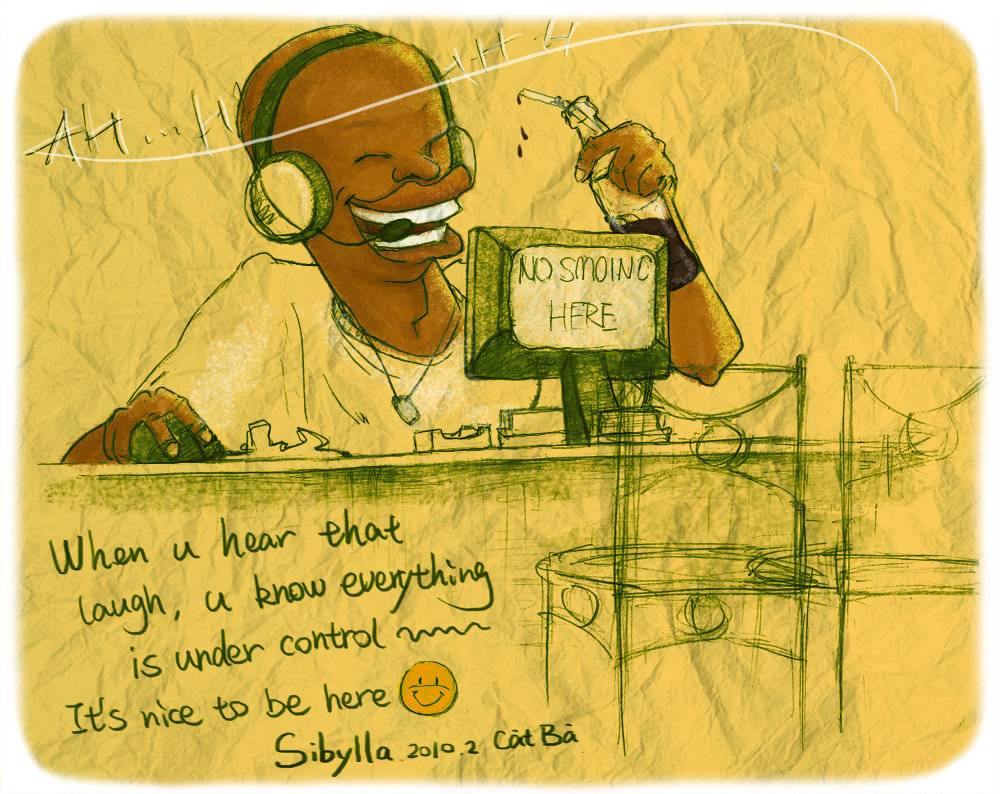 AH...H H-H-H
NO SMOING
HERE
When u hear that
laugh, u know everything
is under control
It's nice to be here
Sibylla 2010.2 Cát Bà